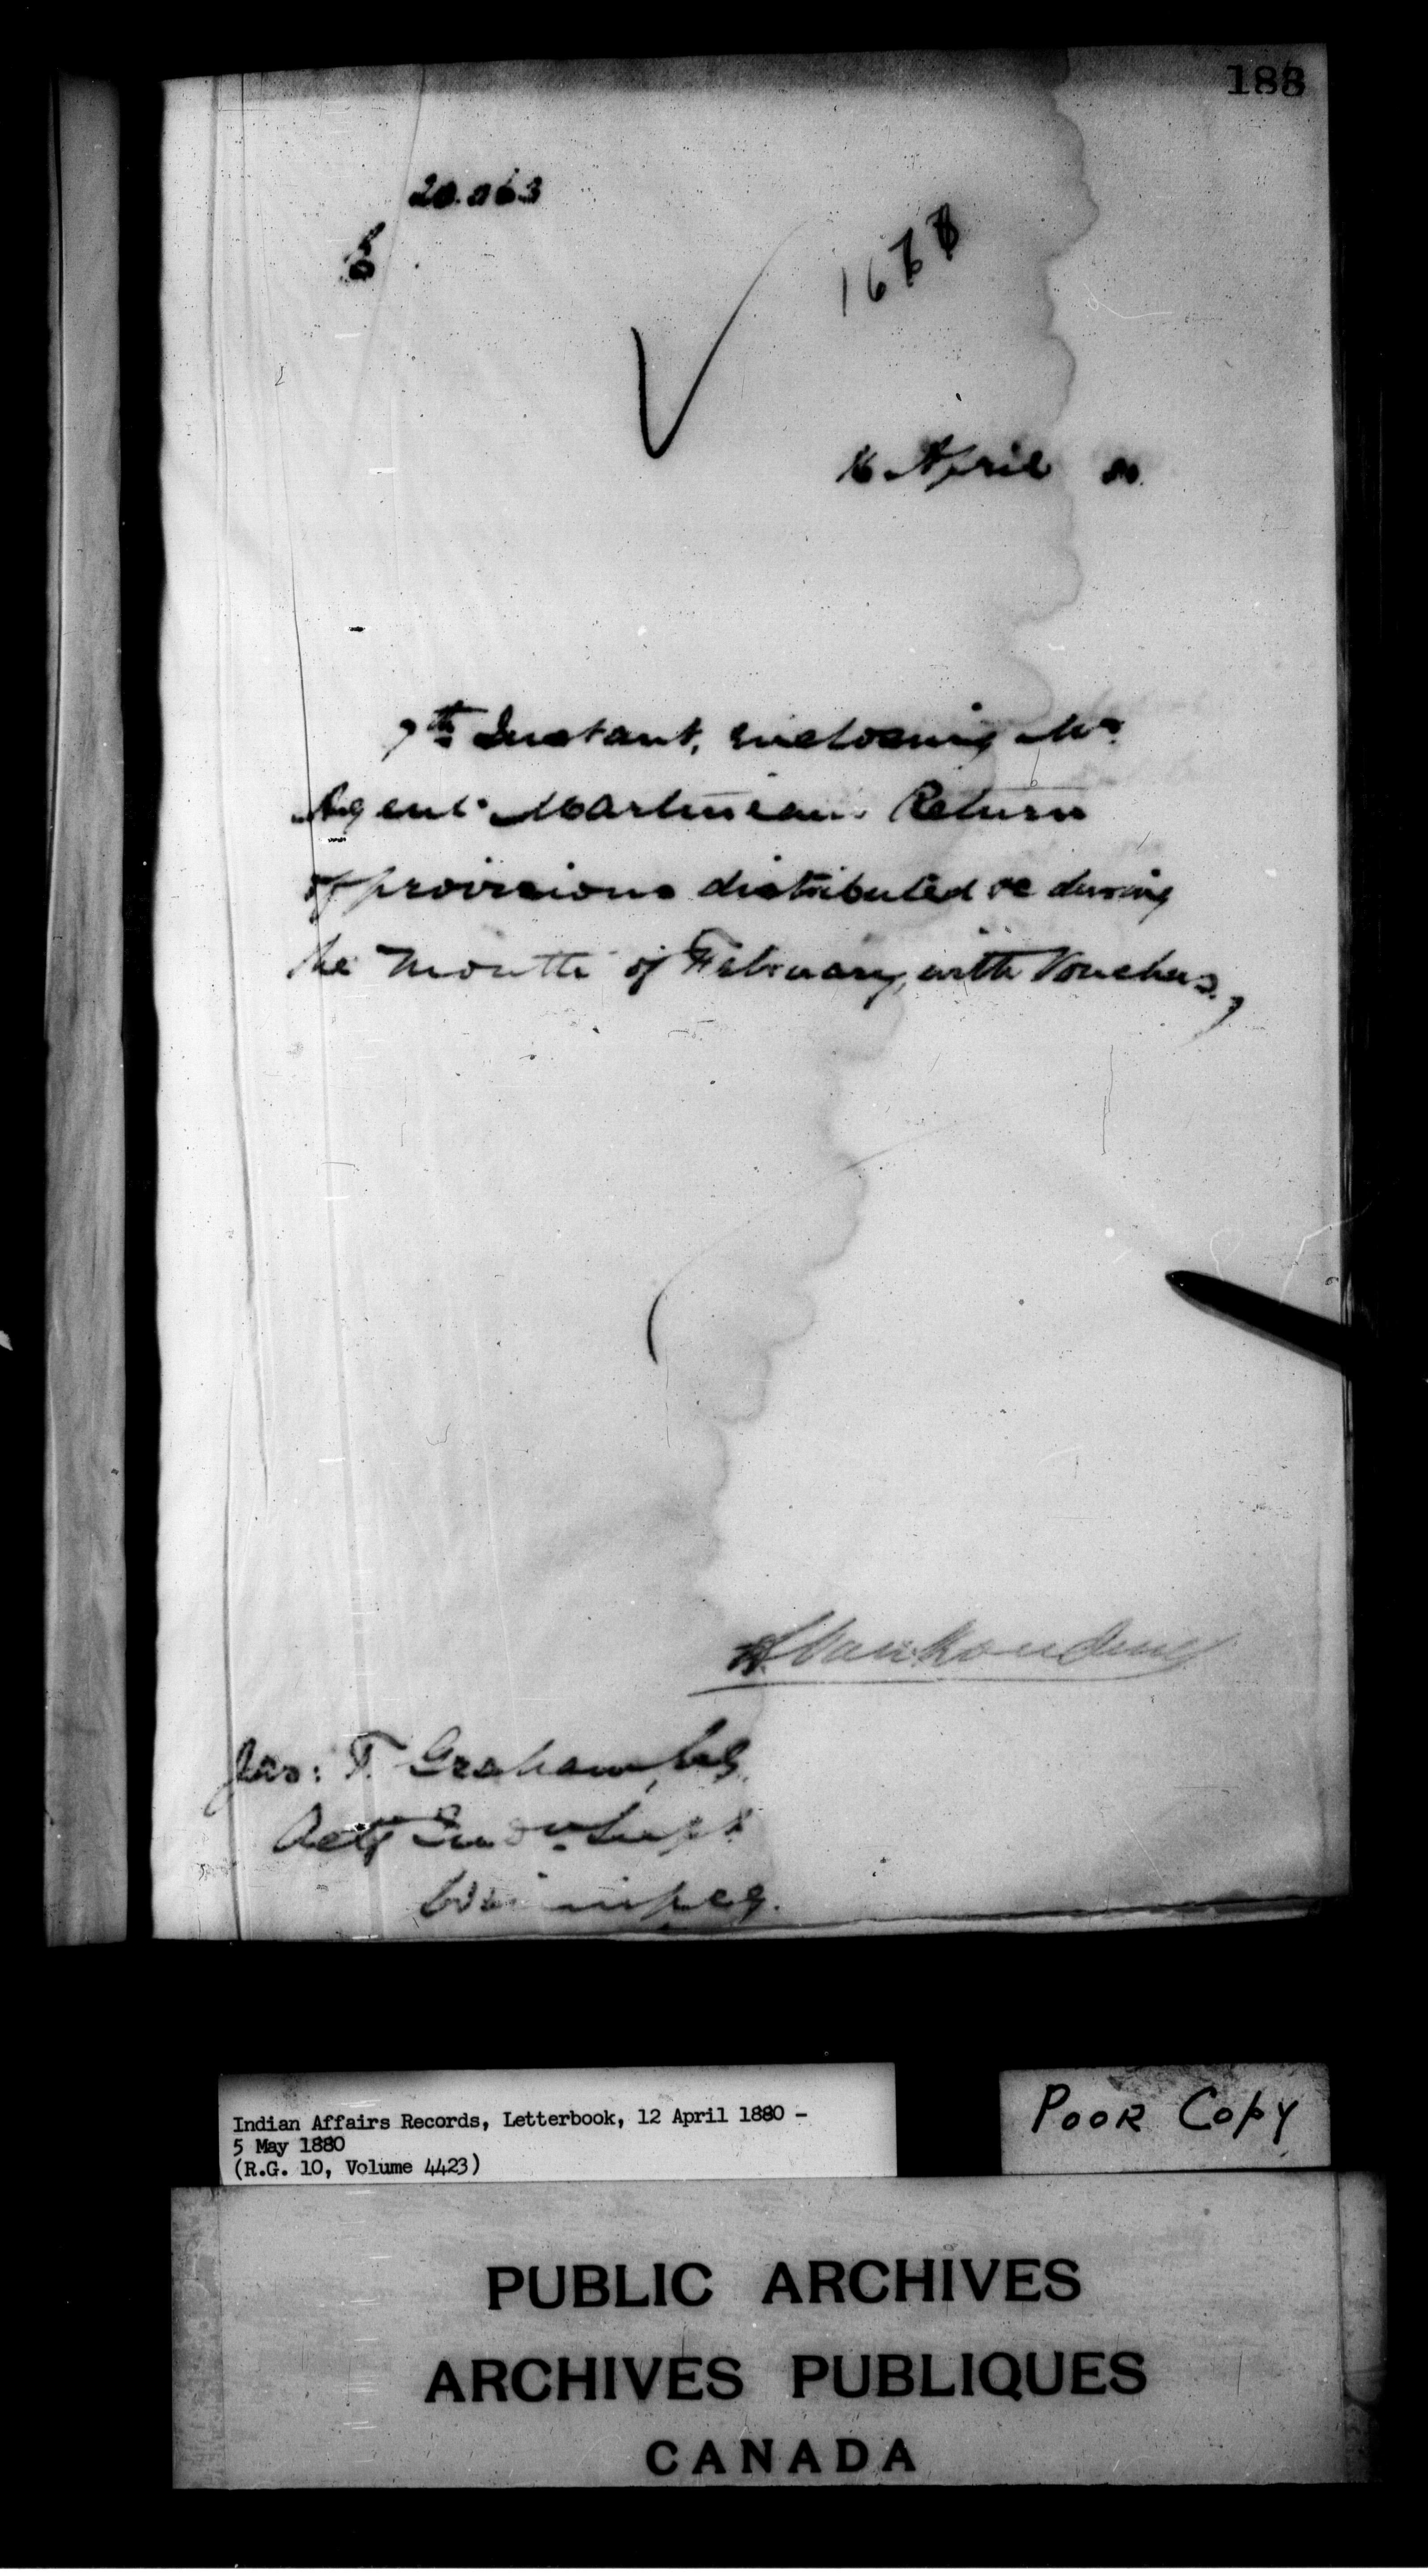 188
20.063
16 April 80.
7th Instant, enclosing Mr.
Agent Martineau's Return
of provisions distributed &c during
the Month of February, with Vouchers.,
L VanKoughnet
Jas: F. Graham, Esq
Actg Ind. Supt
Winnipeg.
Indian Affairs Records, Letterbook, 12 April 1880 -
5 May 1880
(R.G. 10, Volume 4423)
POOR COPY
PUBLIC ARCHIVES
ARCHIVES PUBLIQUES
CANADA